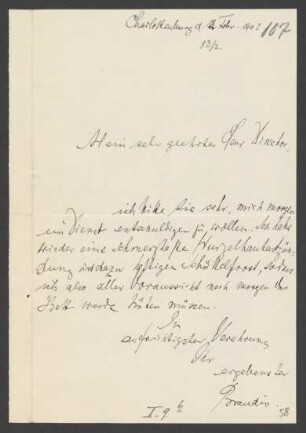 Charlottenburg d. 12 Febr. 1902 107
13/2.
Mein sehr geehrter Herr Director,
ich bitte Sie sehr, mich morgen
im Dienst entschuldigen zu wollen. Ich habe
wieder eine schmerzhafte Wurzelhautentzün-
dung und dazu heftigen Schüttelfrost, sodass
ich also aller Voraussicht nach morgen das
Bett werde hüten müssen.
In
aufrichtigster Verehrung
Ihr
ergebenster
I. 9 b 58